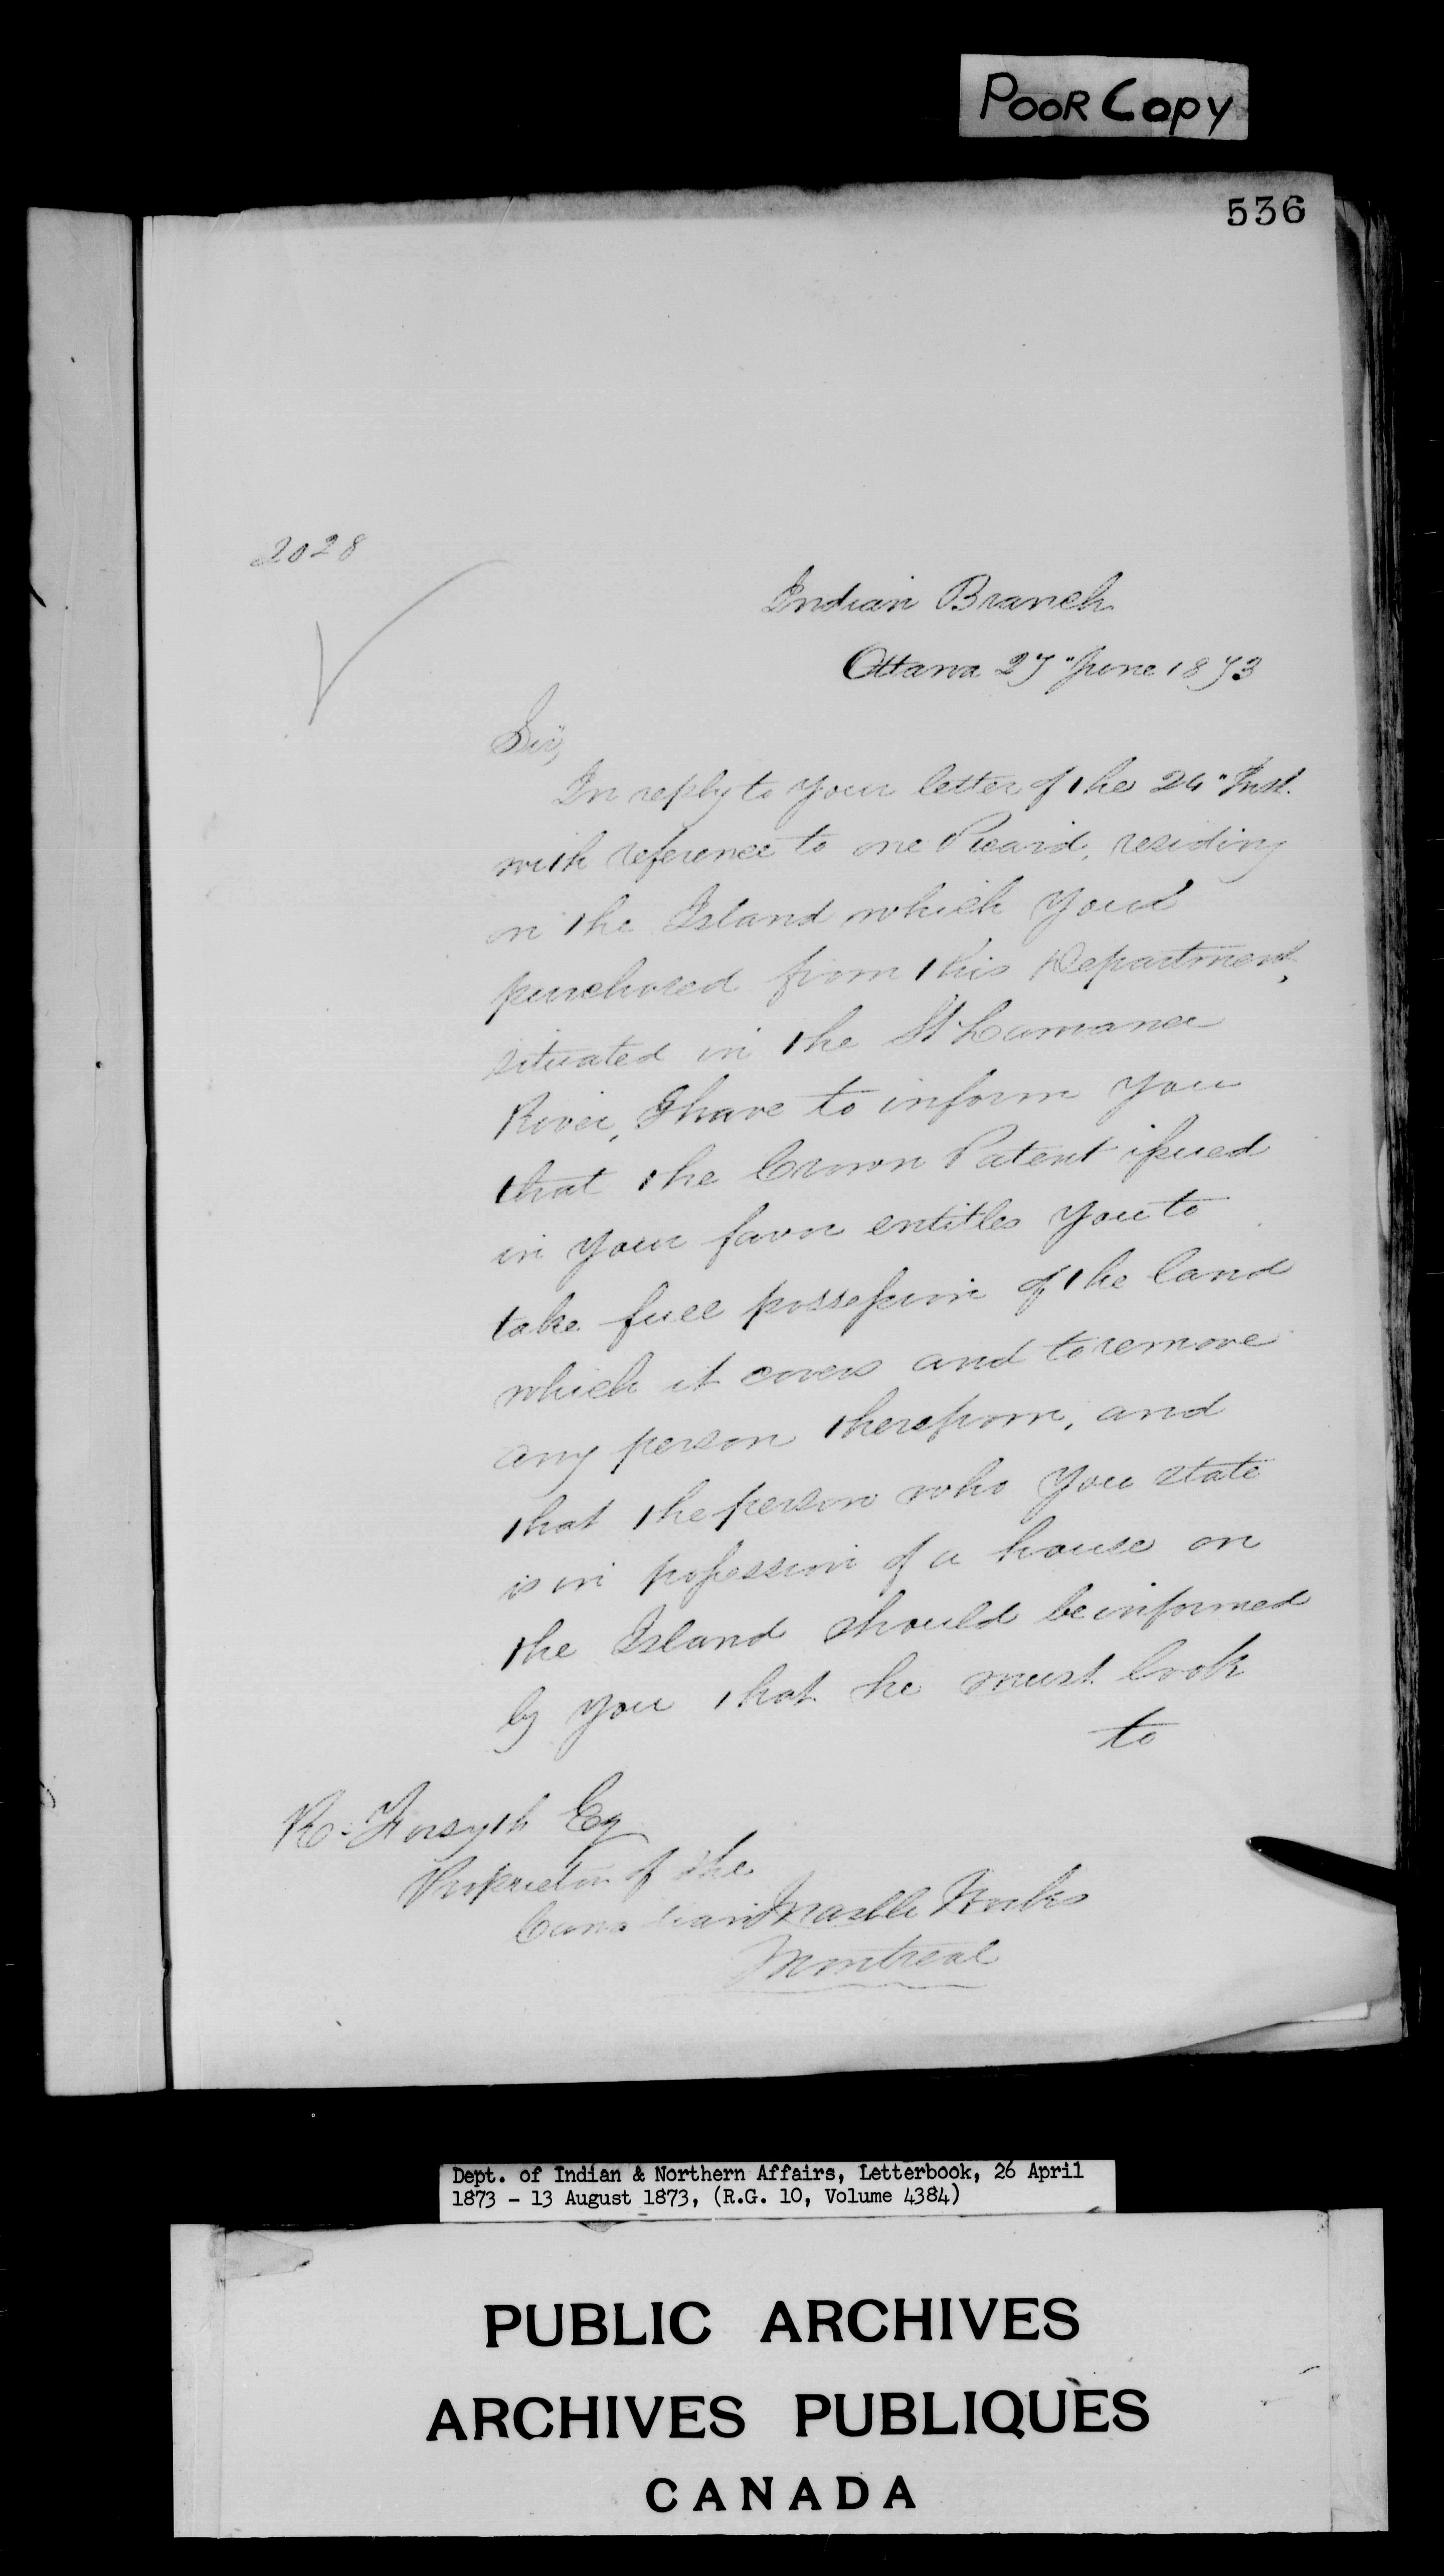 POOR COPY
536
2028
Indian Branch
Ottawa 27" June 1873
Sir,
In reply to your letter of the 24" Inst.
with reference to one Picard, residing
on the Island which you
purchased from this Department,
situated in the St Lawrance
River, I have to inform you
that the Crown Patent issued
in your favor entitles you to
take full possession of the land
which it covers and to remove
any person therefrom, and
that the person who you state
is in possession of a house on
the Island should be informed
by you that he must look
to
R. Forsyth Esq
Proprietor of the
Canadian Marble Works
Montreal
Dept. of Indian & Northern Affairs, Letterbook, 26 April
1873 - 13 August 1873, (R.G. 10, Volume 4384)
PUBLIC ARCHIVES
ARCHIVES PUBLIQUES
CANADA